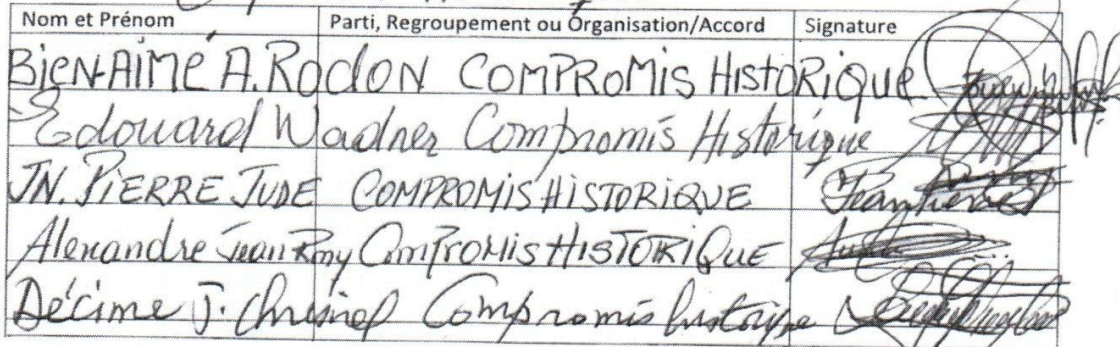 Nom et Prénom Parti, Regroupement ou Organisation/Accord Signature
BIEN-AIMÉ A. ROdON COMPROMIS HISTORIQUE
Edouard Wadner Compromis Historique
JN. PIERRE JUDE COMPROMIS HISTORIQUE Jean Pierre
Alexandre Jean Rony COMPROMIS HISTORIQUE
Décime J. Compromis historique